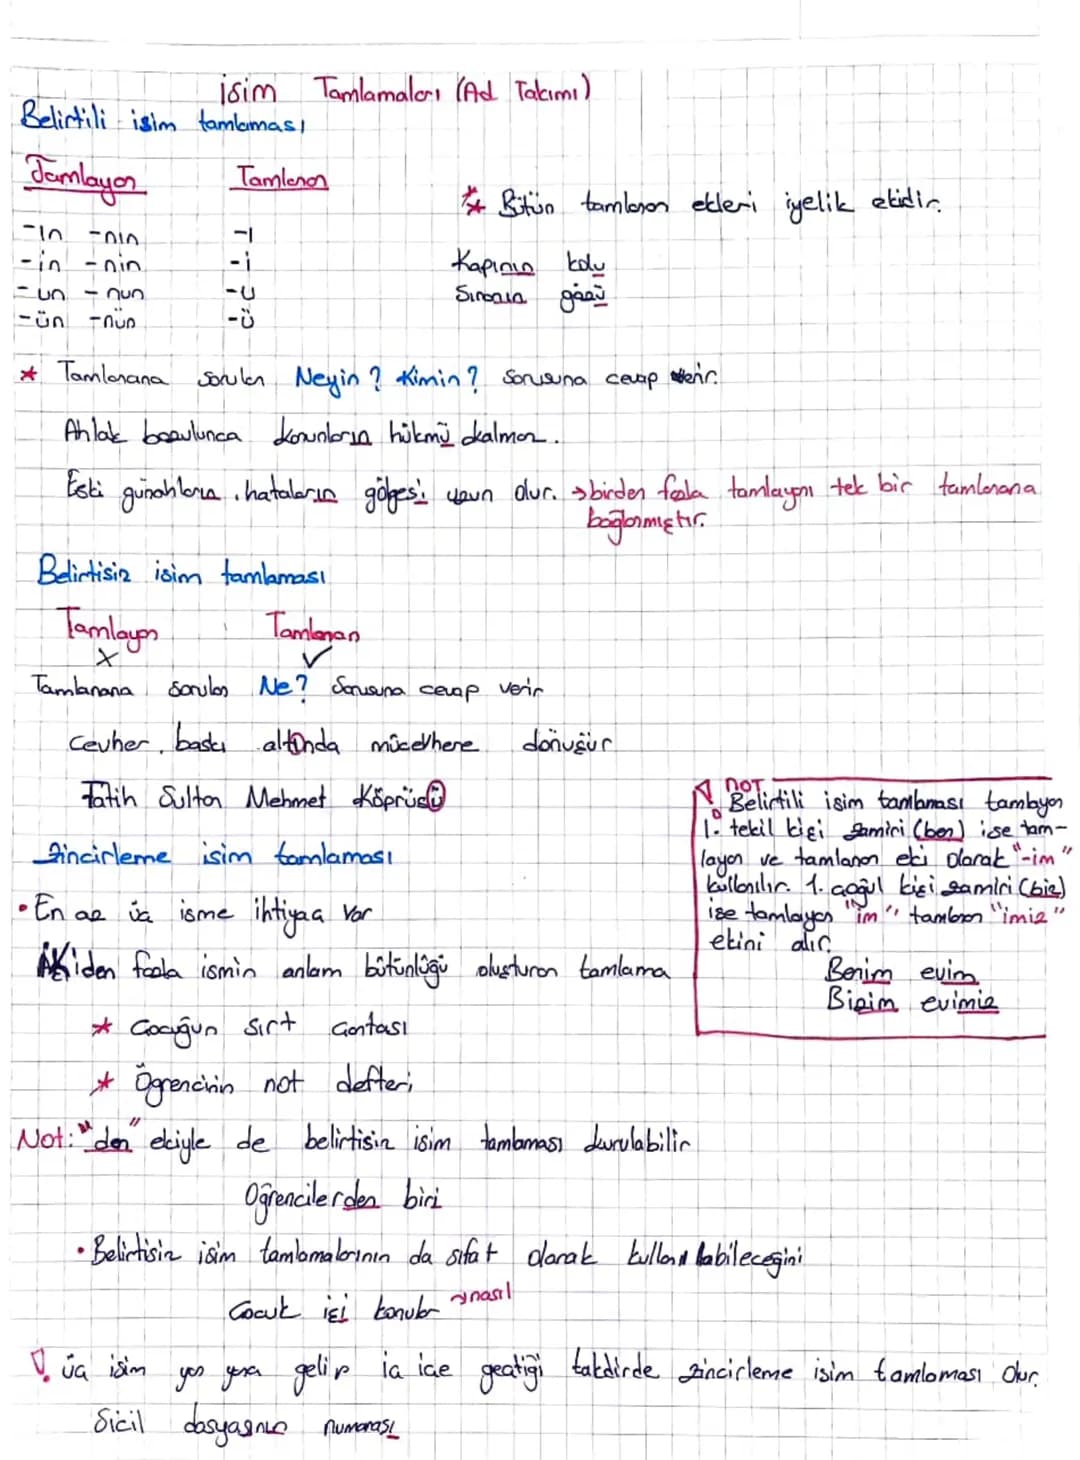 isim Tamlamaları (Ad Takımı)
Belirtili isim tamlaması
Tamlayan Tamlanan
-ın -nın -ı
-in -nin -i
-un -nun -u
-ün -nün -ü
* Bütün tamlanan ekleri iyelik ekidir.
Kapının kolu
Sıranın gözü
* Tamlanana sorulan Neyin? Kimin? sorusuna cevap verir.
Ahlak bozulunca kanunların hükmü kalmaz.
Eski günahların, hataların gölgesi uzun olur. → birden fazla tamlayanı tek bir tamlanana
bağlanmıştır.
Belirtisiz isim tamlaması
Tamlayan Tamlanan
X ✓
Tamlanana sorulan Ne? Sorusuna cevap verir
Cevher, baskı altında mücevhere dönüşür
Fatih Sultan Mehmet Köprüsü
Zincirleme isim tamlaması
• En az üç isme ihtiyaç var
İkiden fazla ismin anlam bütünlüğü oluşturan tamlama
* Çocuğun sırt çantası
* Öğrencinin not defteri
NOT
Belirtili isim tamlaması tamlayan
1. tekil kişi zamiri (ben) ise tam-
layan ve tamlanan eki olarak "-im"
kullanılır. 1. çoğul kişi zamiri (biz)
ise tamlayan "im" tamlanan "imiz"
ekini alır.
Benim evim
Bizim evimiz
Not: "den" ekiyle de belirtisiz isim tamlaması kurulabilir
Öğrencilerden biri
• Belirtisiz isim tamlamalarının da sıfat olarak kullanılabileceğini
Çocuk işi konular → nasıl
! üç isim yan yana gelip iç içe geçtiği takdirde zincirleme isim tamlaması olur.
Sicil dosyasının numarası